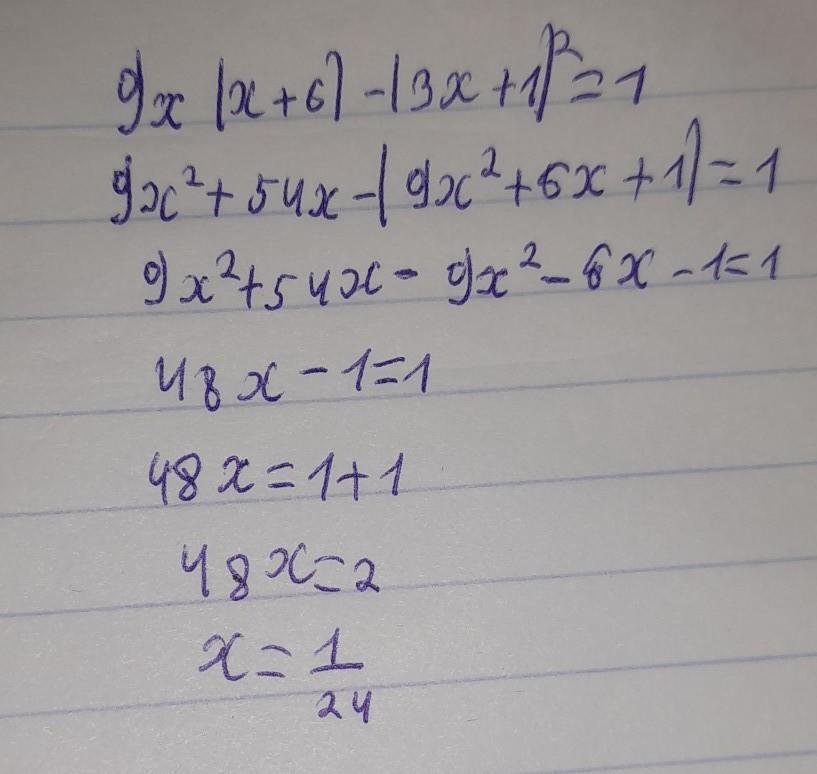 9x(x+6)-(3x+1)²=1
9x²+54x-(9x²+6x+1)=1
9x²+54x-9x²-6x-1=1
48x-1=1
48x=1+1
48x=2
x=1/24